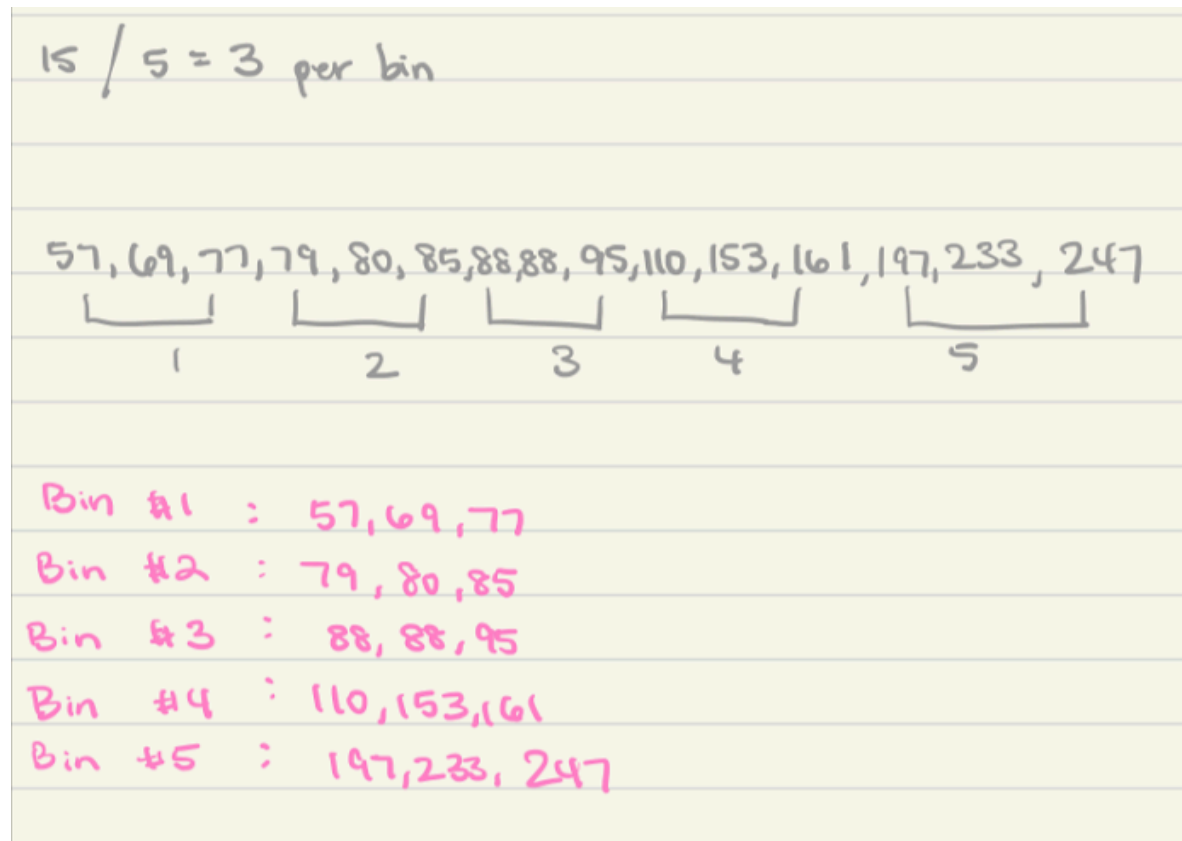 15 / 5 = 3 per bin
57, 69, 77, 79, 80, 85, 88, 88, 95, 110, 153, 161, 197, 233, 247
1 2 3 4 5
Bin #1 : 57, 69, 77
Bin #2 : 79, 80, 85
Bin #3 : 88, 88, 95
Bin #4 : 110, 153, 161
Bin #5 : 197, 233, 247